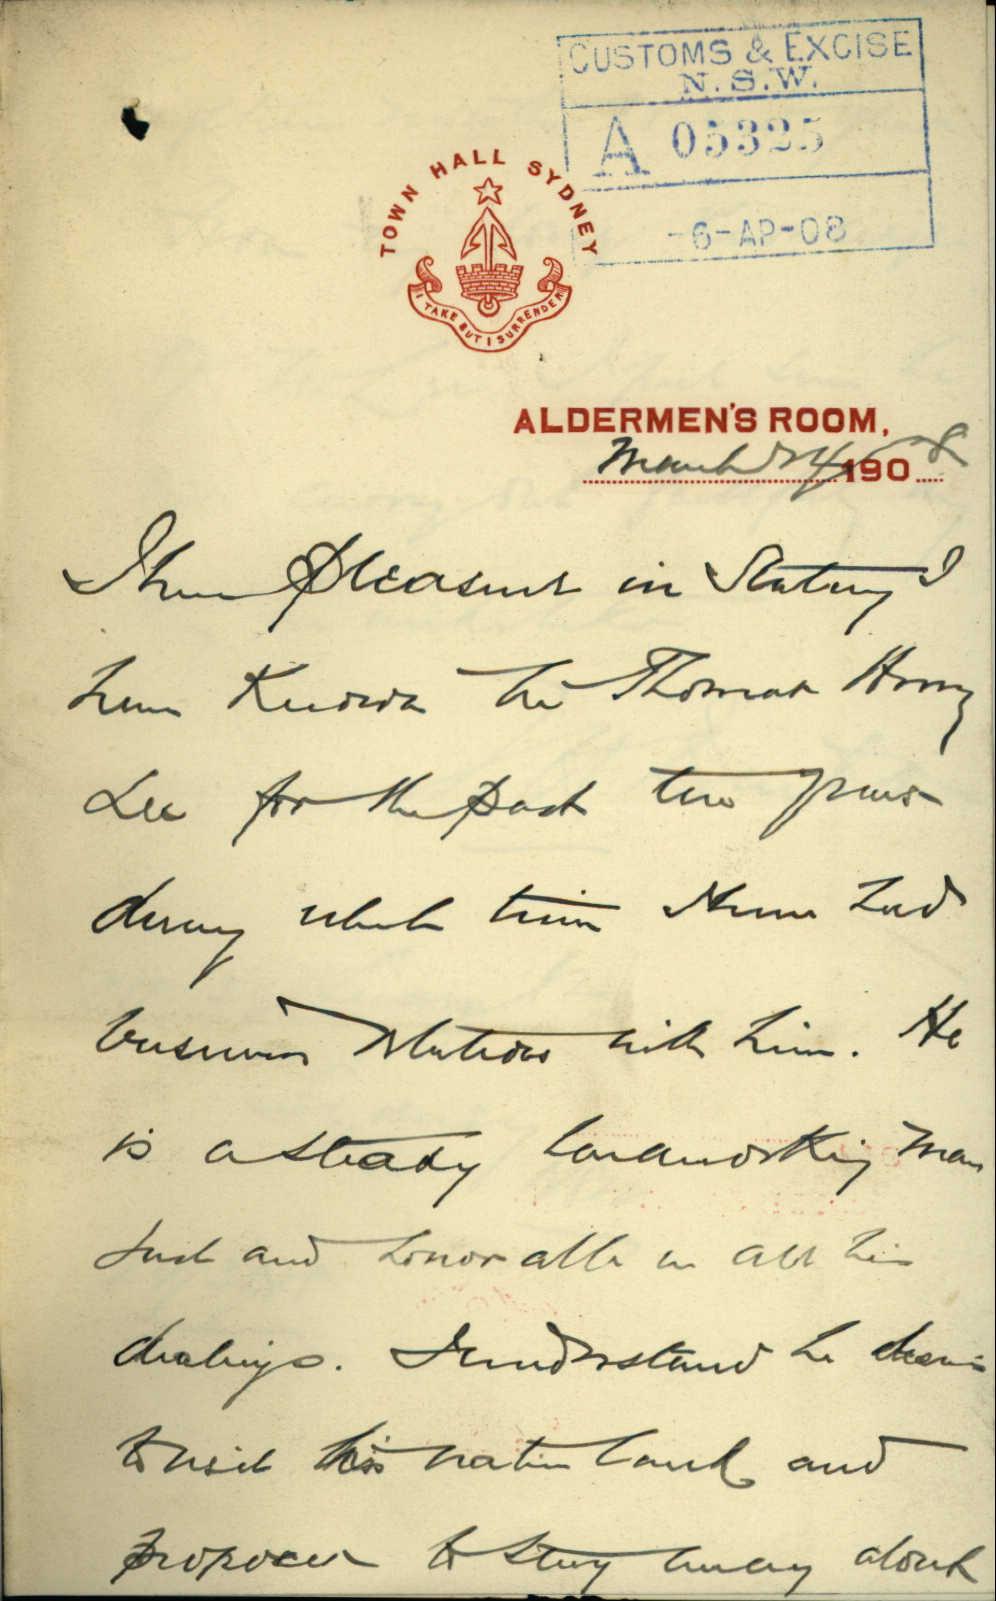 CUSTOMS & EXCISE
N.S.W.
A 05325
-6-AP-08
TOWN HALL SYDNEY
I TAKE BUT I SURRENDER
ALDERMEN'S ROOM,
March 24 1908
I have pleasure in Stating I
have Known Mr Thomas Henry
Lee for the past ten years
during which time I have had
business relations with him. He
is a steady hardworking man
Just and honorable in all his
dealings. I understand he desires
to visit his native land and
proposes to stay away about